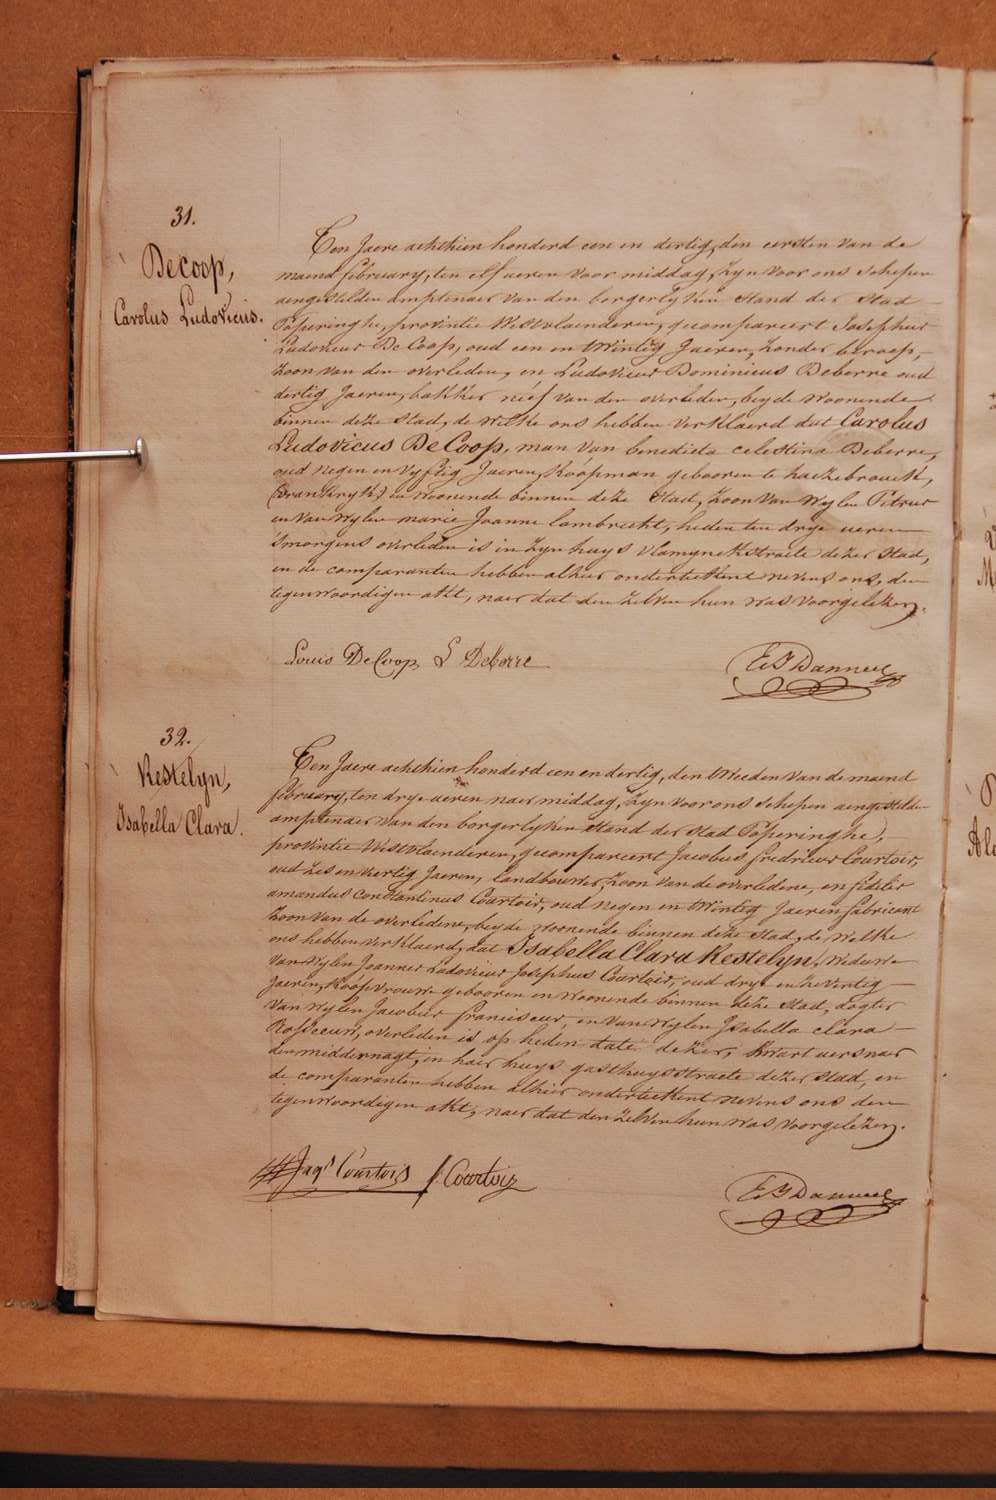 31.
Decoop,
Carolus Ludovicus.
Ten Jaere achthien honderd een en dertig, den eersten van de
maend february, ten elf ueren voor middag, Zyn voor ons Schepen
aengestelden amptenaer van den borgerlyken Stand der Stad
Poperinghe, provintie Westvlaenderen, gecompareert Josephus
Ludovicus DeCoop, oud een en twintig Jaeren, Zonder beroep,
Zoon van den overleden, en Ludovicus Dominicus Deberre oud
dertig Jaeren, bakker néef van den overleden, beyde Woonende
binnen deze Stad, de Welke ons hebben verklaerd dat Carolus
Ludovicus DeCoop, man van benedicta celestina Deberre,
oud negen en vyftig Jaeren, Koopman gebooren te haezebrouck,
(Vrankryk) en Woonende binnen deze Stad, Zoon van Wylen Petrus
en van Wylen marie Joanne lambrecht, heden ten drye ueren
'smorgens overleden is in Zyn huys vlamynckstraete dezer Stad,
en de comparanten hebben alhier onderteekent nevens ons, den
tegenwoordigen akt, naer dat den Zelven hun was voorgelezen.
Louis DeCoop L Deberre
E J Danneel
32.
Kestelyn,
Isabella Clara.
Ten Jaere achthien honderd een en dertig, den tweeden van de maend
february, ten drye ueren naer middag, Zyn voor ons Schepen aengestelden
amptenaer van den borgerlyken Stand der Stad Poperinghe,
provintie Westvlaenderen, gecompareert Jacobus fredricus Courtois,
oud Zes en veertig Jaeren, landbouwer, Zoon van de overledene, en fidelis
amandus constantinus Courtois, oud negen en twintig Jaeren fabricant
Zoon van de overledene, beyde woonende binnen deze Stad, de Welke
ons hebben verklaerd, dat Isabella Clara Kestelyn, Weduwe
van Wylen Joannes Ludovicus Josephus Courtois, oud drye en Zeventig
Jaeren, Koopvrouwe gebooren en woonende binnen deze Stad, dogter
van Wylen Jacobus franciscus, en van Wylen Isabella clara
Rosseeuw, overleden is op heden date dezer, Kwart uers naer
den middernagt, in haer huys gasthuysstraete dezer Stad, en
de comparanten hebben alhier onderteekent nevens ons den
tegenwoordigen akt, naer dat den Zelven hun was voorgelezen.
Jaqs Courtois f. Courtois
E J Danneel